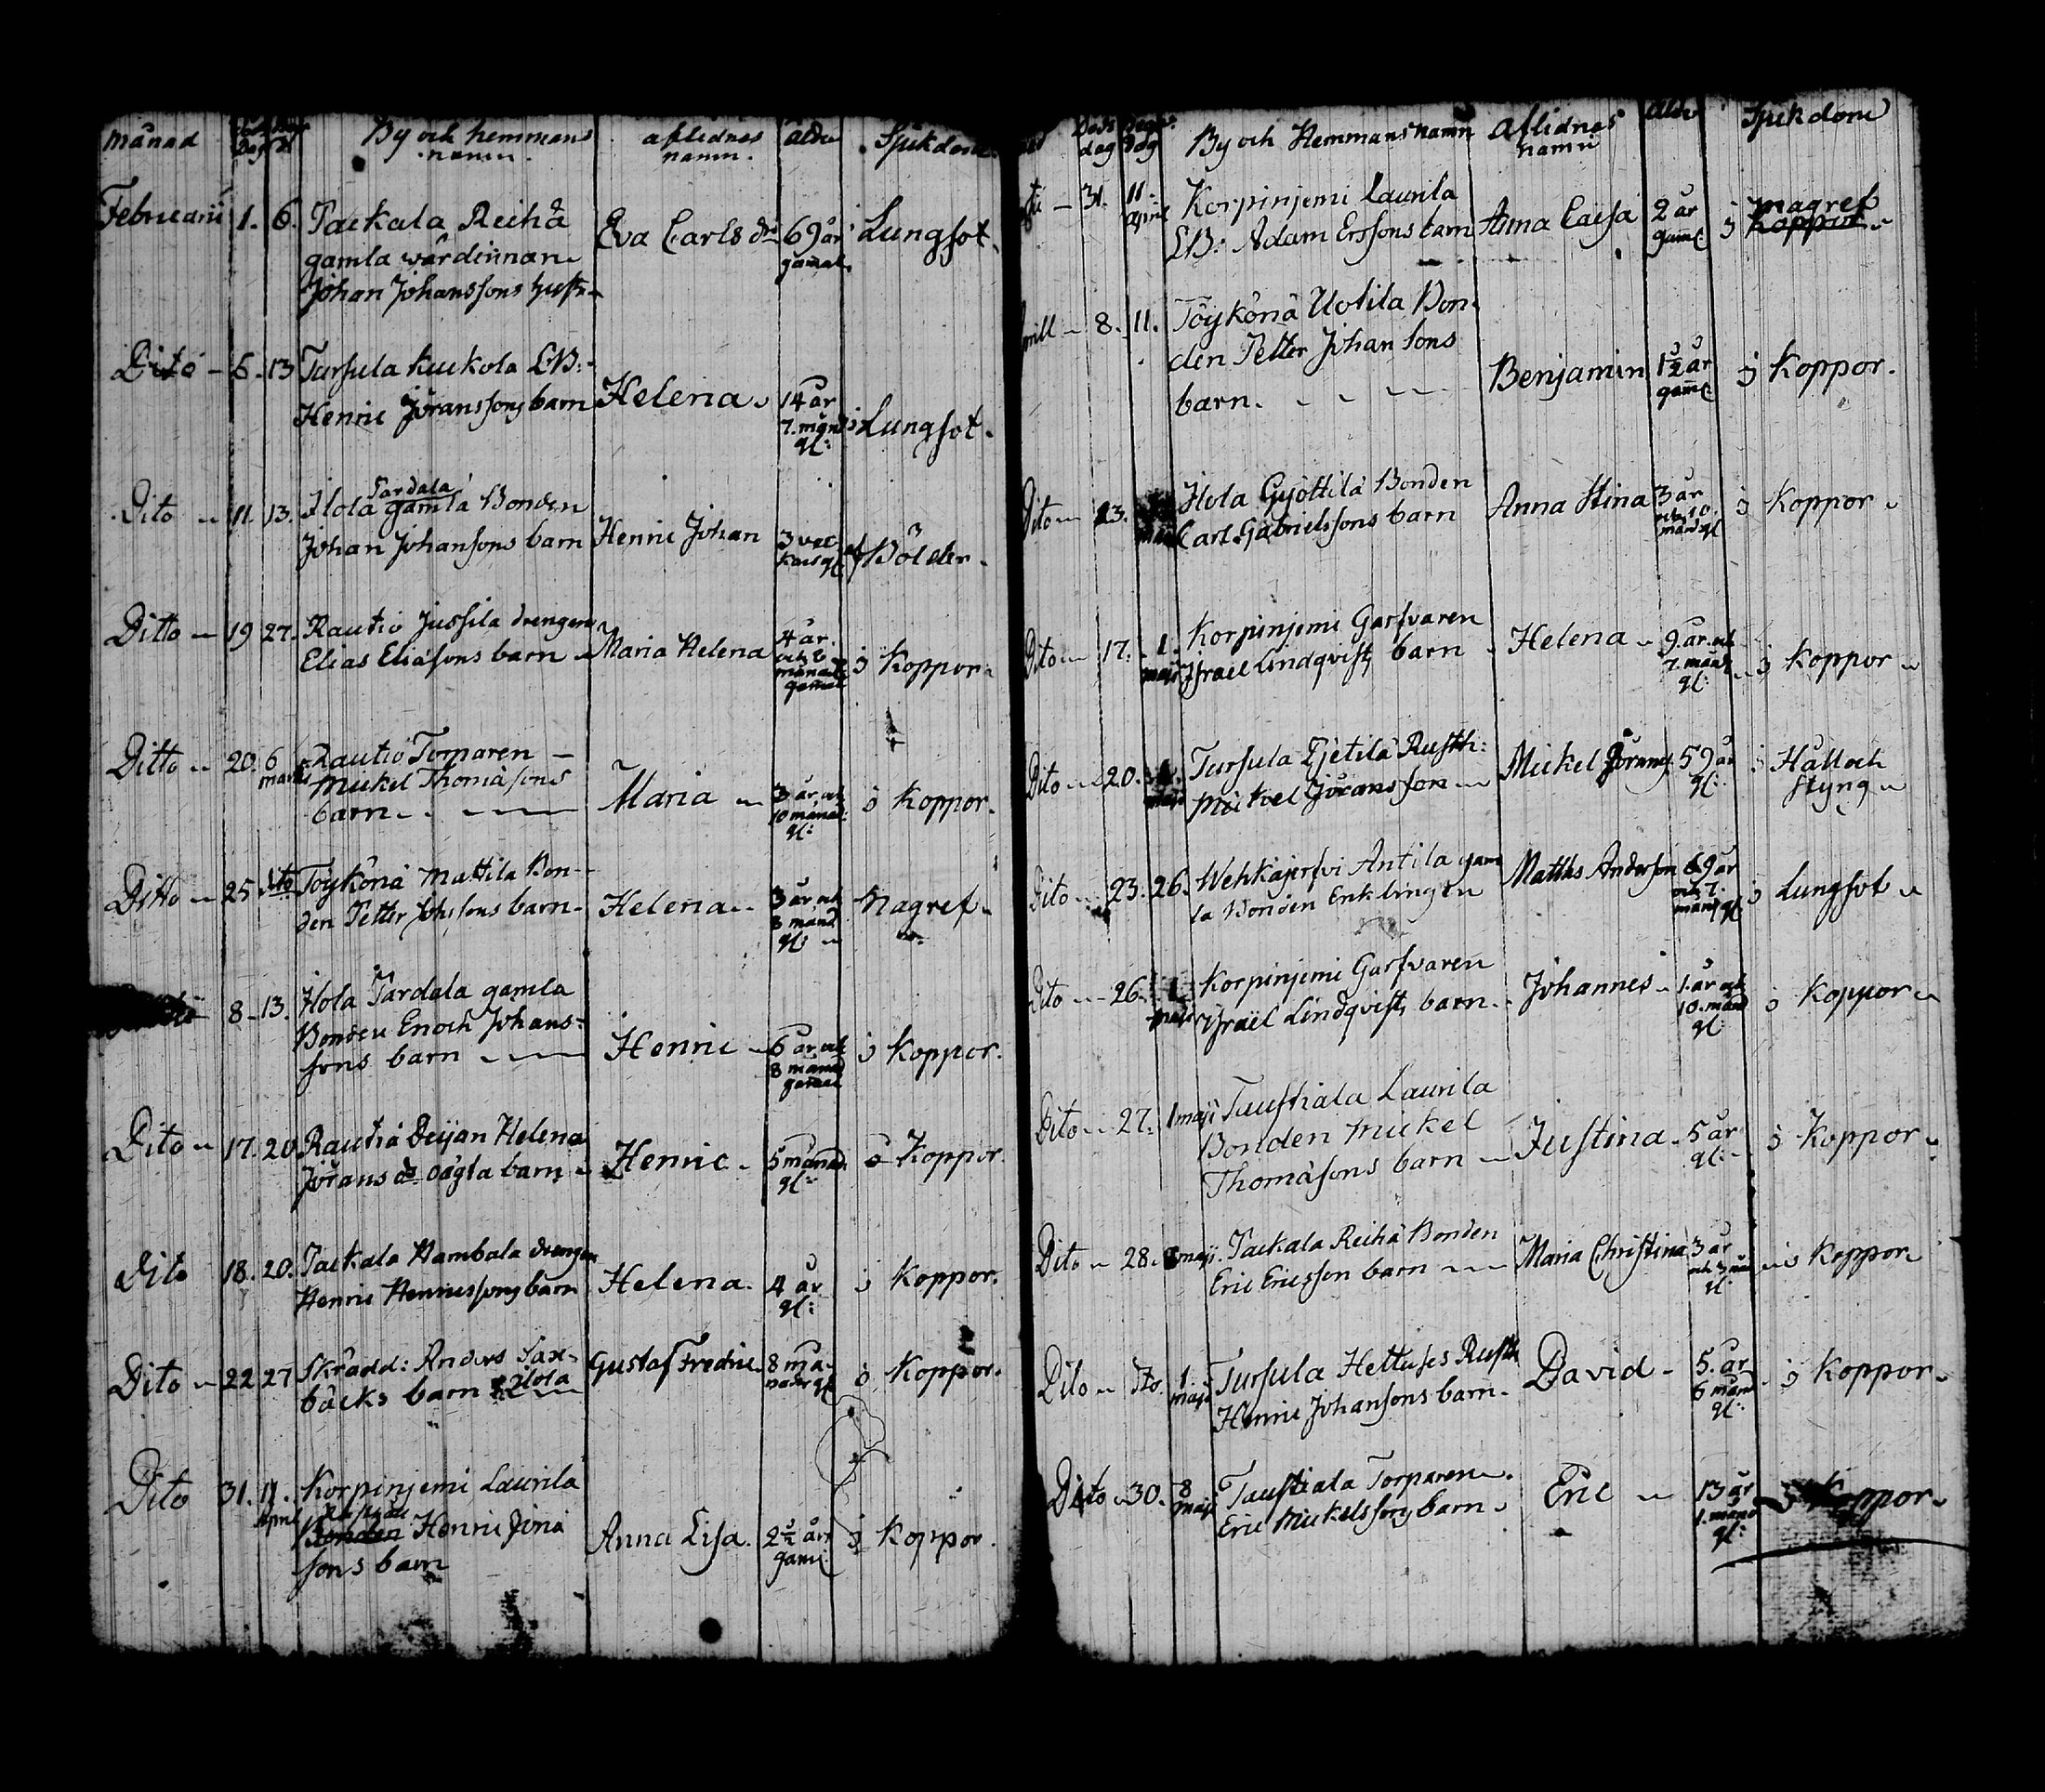 månad By och hemmans namn. aflidnes namn. ålder Sjukdom.
Februarii 1. 6. Taekala Reihä
gamla wärdinnan Eva Carls dr 69 år gamal. Lungsot.
Johan Johanssons hustr
Dito 6. 13 Tursula kuckola LB:
Henric Jöranssons barn Helena. 14 år 7. mån gl: i Lungsot.
Dito 11. 13. Hola Tardala gamla Bonden
Johan Johansons barn Henric Johan 3 veckors gl af Bölder.
Ditto 19 27. Rautio Jussila drengen
Elias Eliasons barn Maria Helena 4 år och månad gamal i Koppor.
Ditto 20. 6 martii Rautio Torparen
Mickel Thomasons
barn Maria 3 år och 10 månad: gl: i Koppor.
Ditto 25 dito Töykönä Mattila Bon-
den Petter Johssons barn Helena 3 år och 8 månd gl: magref
8. 13. Hola Tardala gamla
Bonden Enoch Johans-
sons barn Henric 6 år och 8 månad gamal i Koppor.
Dito 17. 20 Rautia Deijan Helena
Jörans dr oägta barn Henric 5 månad. gl: i Koppor.
Dito 18. 20. Taekala Hambala drengen
Henric Henricssons barn Helena. 4 år gl: i Koppor.
Dito 22 27 Skrädd: Anders Tax-
bäcks barn Hola Gustaf Fredric 8 månader gl i Koppor.
Dito 31. 11. April Korpinjemi Laurila
Henric
sons barn Anna Lisa. 2½ år gaml i Koppor.
Död dag By och Hemmans namn Aflidnes namn ålder Sjukdom
31. 11 April Korpinjemi Laurila
LB: Adam Erssons barn Anna Caisa 2 år gaml i magref Koppor
8. 11. Töykönä Uotila Bon-
den Petter Johansons
barn. Benjamin 1½ år gaml i Koppor.
Dito 13. Hola Gyöttilä Bonden
Carl Gabrielssons barn Anna Stina 3 år och 10 månad gl i Koppor
Dito 17. 1. maji Korpinjemi Garfvaren
Israel Lindqvists barn Helena 9 år och 7. månd gl: i Koppor
Dito 20. maji Tursula Pjetilä Rusth:
Mickel Jöransson Mickel Jörans 59 år gl: i Håll och
styng
Dito 23. 26. Wehkajerfvi Antila gam
la Bonden Enklingen Matths Anderson 69 år och 7. månd gl i Lungsot
Dito 26. 1 maji Korpinjemi Garfvaren
Israel Lindqvists barn Johannes 1. år och 10. månd gl: i Koppor
Dito 27. 1 maji Taustiala Laurila
Bonden Mickel
Thomasons barn Justina 5 år gl: i Koppor
Dito 28. maji Taekala Reihä Bonden
Eric Ericsson barn Maria Christina 3 år gl i Koppor
Dito dto. 1. maji Tursula Hettuses Rusth
Henric Johansons barn David 5. år 6 månd gl: i Koppor
Dito 30. 8 maji Taustiala Torparen
Eric Mickelssons barn Eric 13 år 1. månd gl: i Koppor